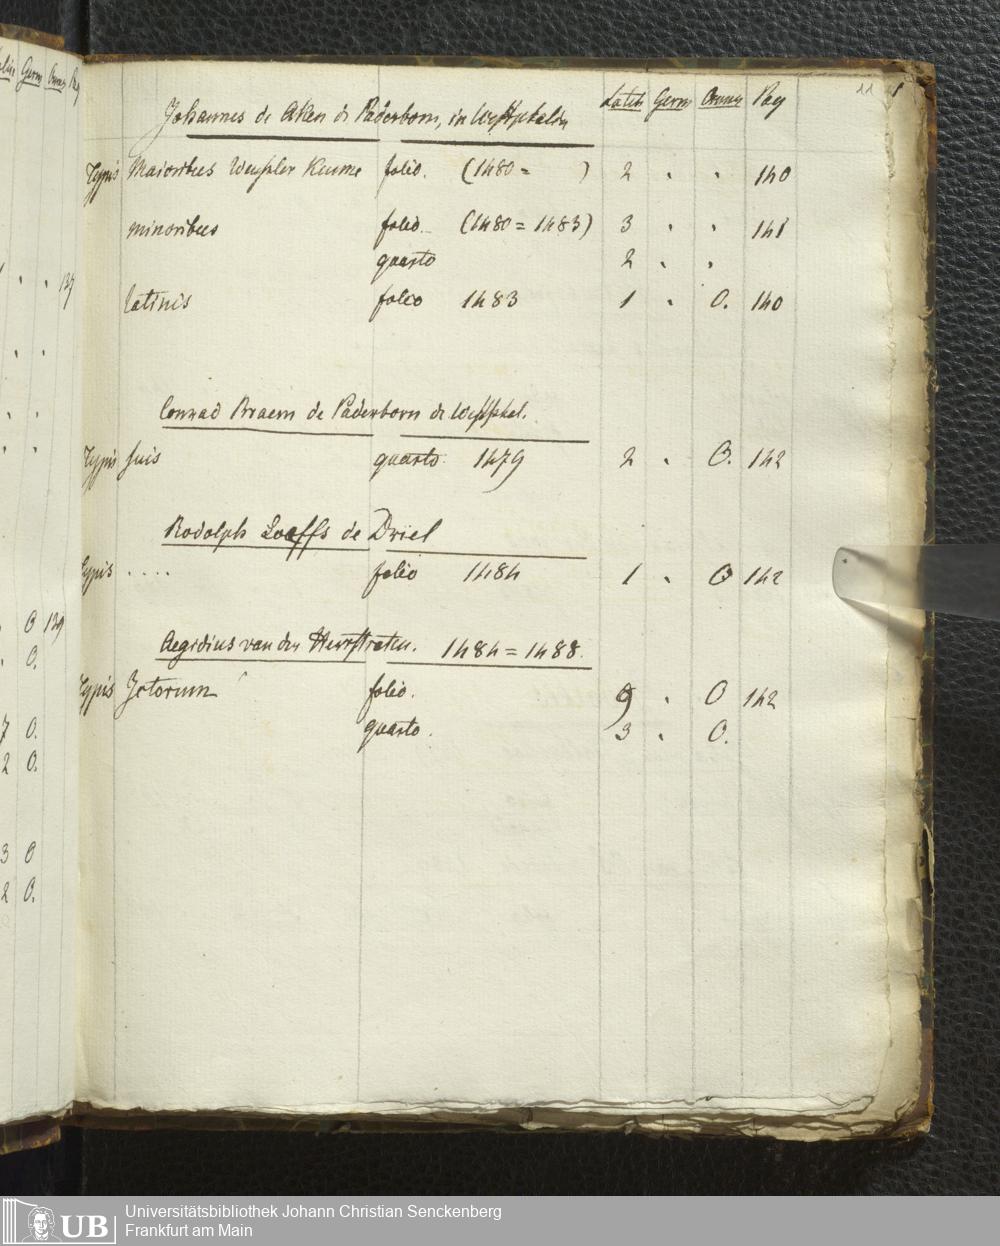 Latin Germ Omnes Pag 11
Johannes de Aken de Paderborn, in Westphalen
Typis Maioribus folio. (1480 = ) 2 . . 140
minoribus folio (1480 = 1483) 3 . . 141
quarto 2 . .
latinis folio 1483 1 . O. 140
Conrad Braem de Paderborn de Westphal.
Typis suis quarto 1479 2 . O. 142
Rodolph Loeffs de Driel
Typis .... folio 1484 1 . O 142
Aegidius van der Heerstraten. 1484 = 1488.
Typis Jctorum folio. 9 . O 142
quarto. 3 . O.
Germ Omnes Pag
. . 139
O 139
O.
7 O.
2 O.
3 O
2 O.
UB
Universitätsbibliothek Johann Christian Senckenberg
Frankfurt am Main